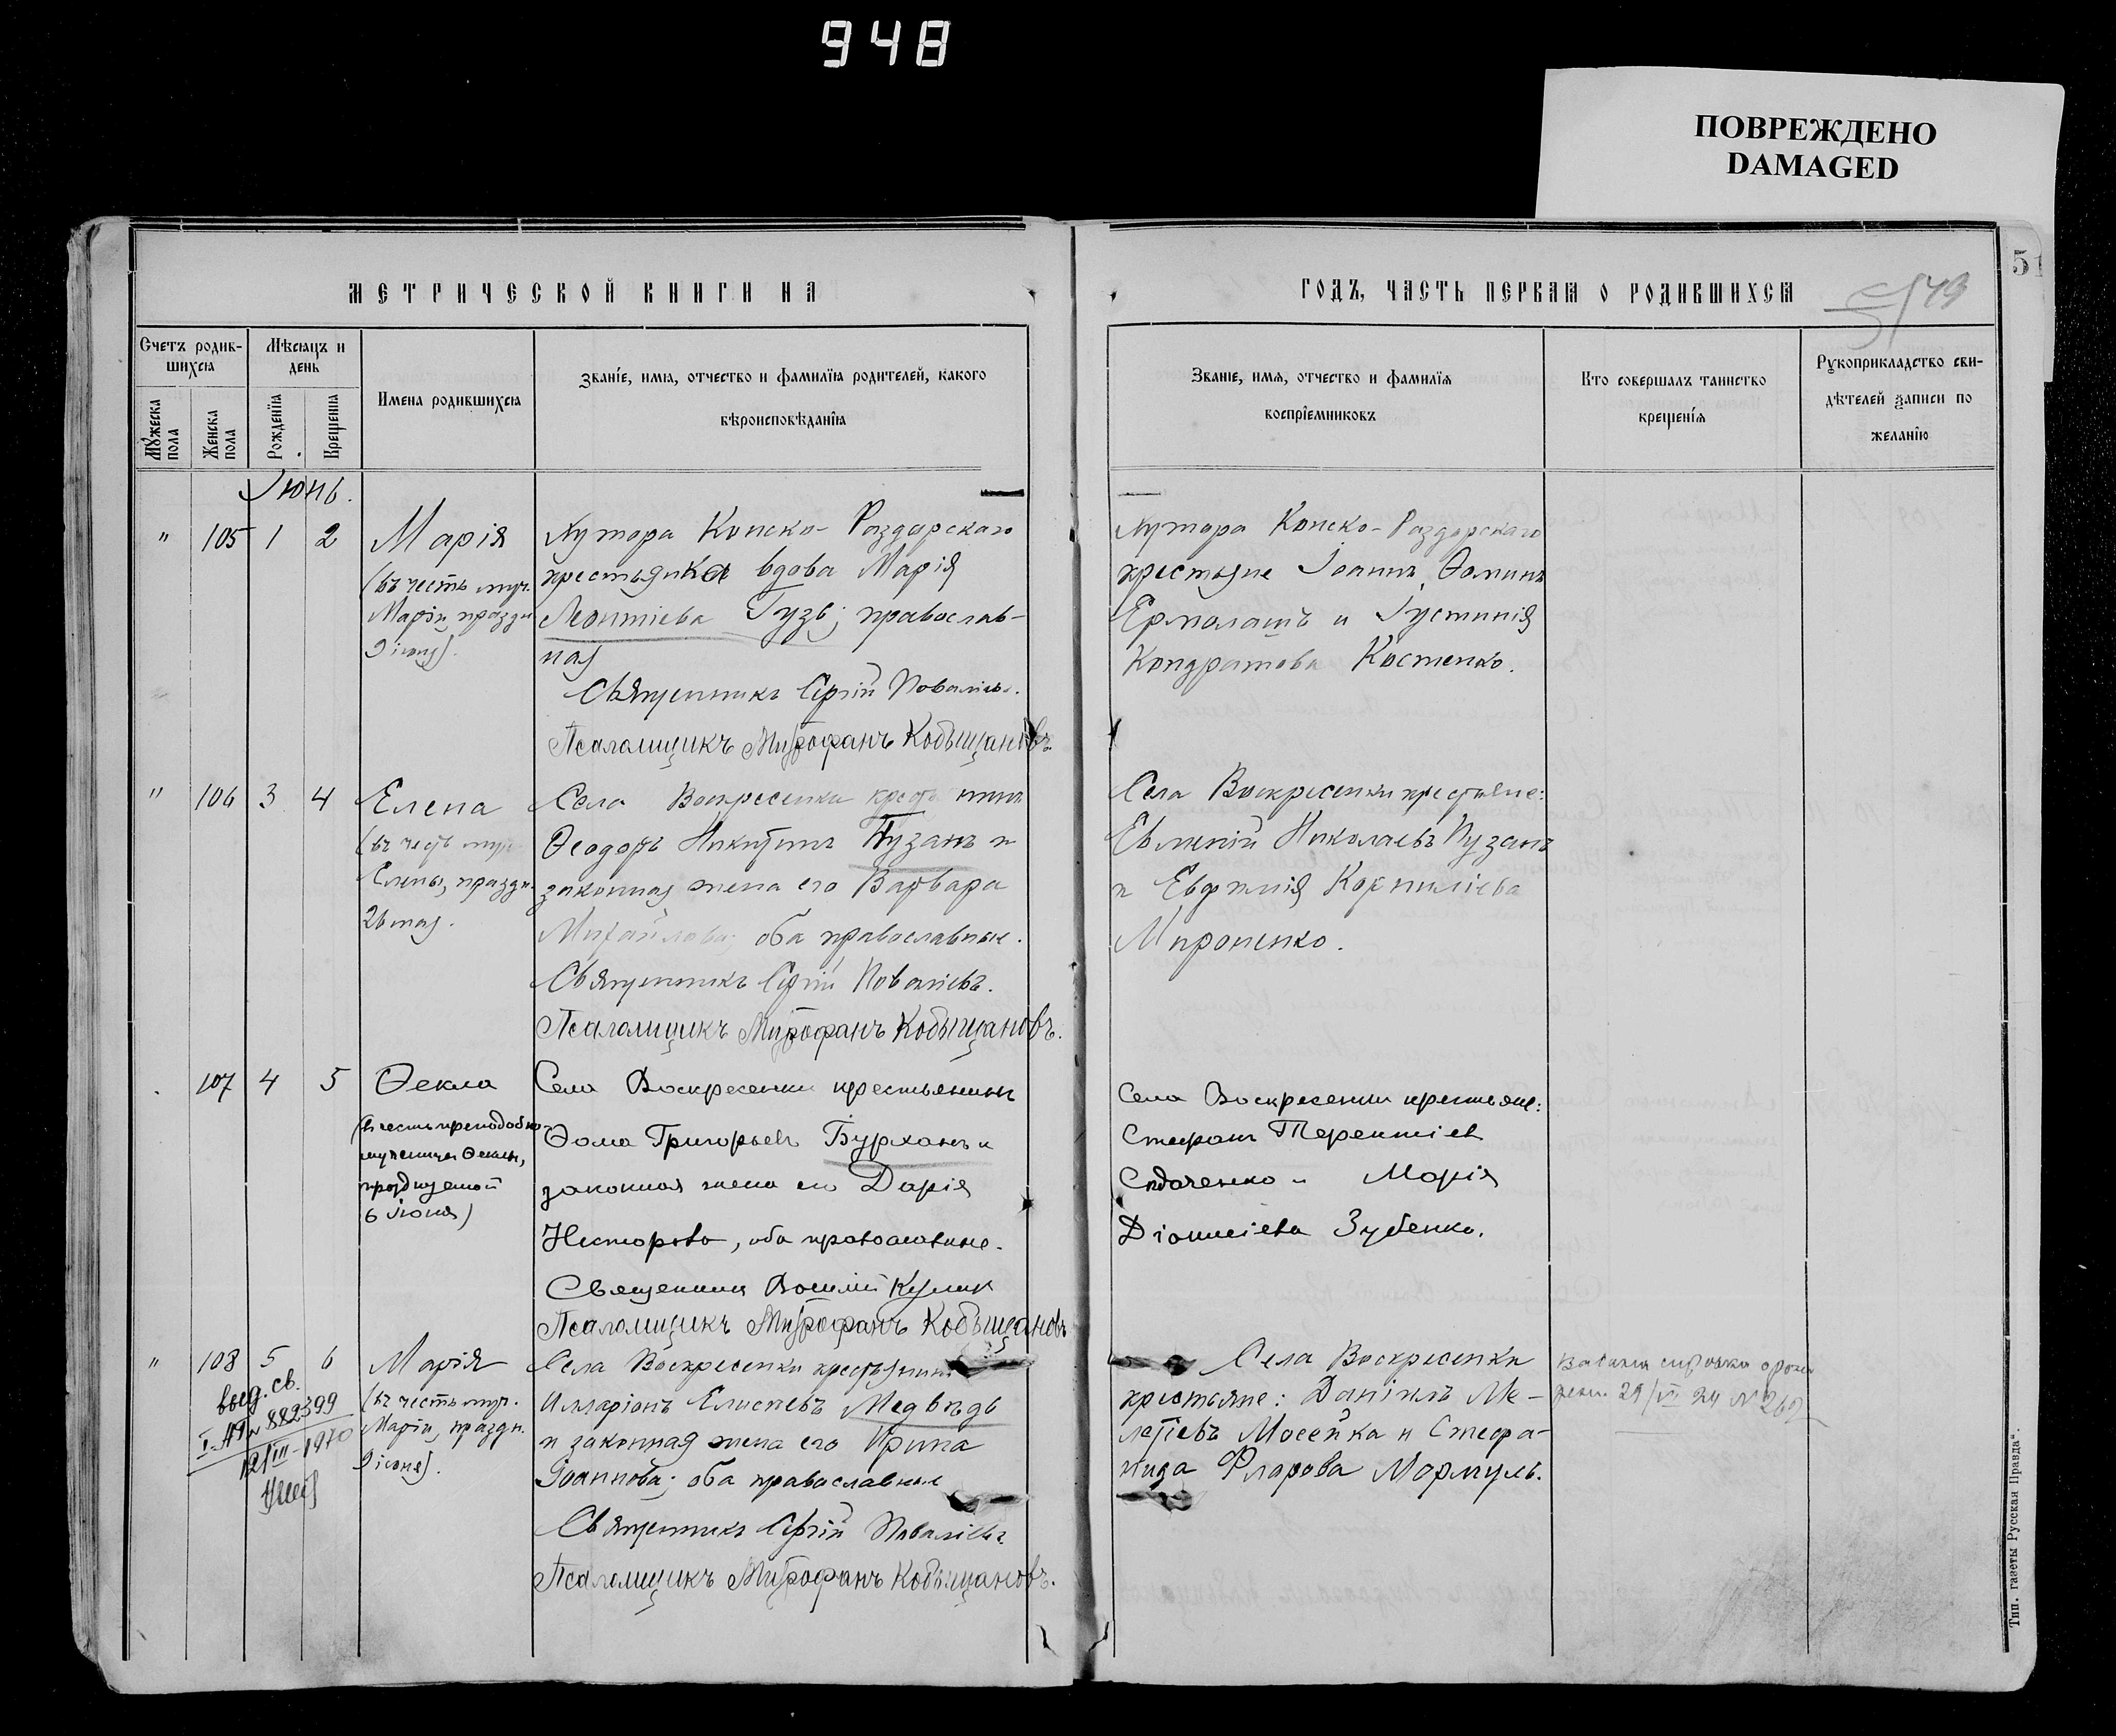 948
ПОВРЕЖДЕНО
DAMAGED
51
МЕТРИЧЕСКОЙ КНИГИ НА
ГОДЪ, ЧАСТЬ ПЕРВАЯ О РОДИВШИХСЯ
Счетъ родив-
шихся
Мѣсяцъ и
день
Мужеска
пола
Женска
пола
Рожденія
Крещенія
Имена родившихся
Званіе, имя, отчество и фамилія родителей, какого
вѣроисповѣданія
Званіе, имя, отчество и фамилія
воспріемниковъ
Кто совершалъ таинство
крещенія
Рукоприкладство сви-
дѣтелей записи по
желанію
Іюнь.
" 105 1 2
Марія
(въ честь муч.
Маріи, праздн.
9 іюня).
Хутора Конско-Раздорскаго
крестьянка вдова Марія
Леонтіева Гузь; православ-
ная
Священникъ Сергій Поваліевъ.
Псаломщикъ Митрофанъ Кобыщановъ.
Хутора Конско-Раздорскаго
крестьяне Іоаннъ Ѳоминъ
Ермолатъ и Іустинія
Кондратова Костенко.
" 106 3 4
Елена
(въ честь муч.
Елены, праздн.
26 мая).
Села Воскресенки крестьянинъ
Ѳеодоръ Никитинъ Пузанъ и
законная жена его Варвара
Михайлова; оба православные.
Священникъ Сергій Поваліевъ.
Псаломщикъ Митрофанъ Кобыщановъ.
Села Воскресенки крестьяне:
Евменій Николаевъ Пузанъ
и Евфимія Корниліева
Мироненко.
107 4 5
Ѳекла
(въ честь преподобно-
мученицы Ѳеклы,
празднуемой
6 іюня)
Села Воскресенки крестьянинъ
Ѳома Григорьевъ Бурханъ и
законная жена его Дарія
Несторова, оба православные.
Священникъ Василій Кулик
Псаломщикъ Митрофанъ Кобыщановъ
Села Воскресенки крестьяне:
Стефанъ Терентіев
Сидаченко и Марія
Діонисіева Зубенко.
" 108 5 6
выд. св.
882399
12/III-1970
Марія
(въ честь муч.
Маріи, праздн.
9 іюня).
Села Воскресенки крестьянинъ
Илларіонъ Елисеевъ Медвѣдь
и законная жена его Ирина
Іоаннова; оба православные
Священникъ Сергій Поваліевъ
Псаломщикъ Митрофанъ Кобыщановъ.
Села Воскресенки
крестьяне: Даніилъ Ме-
летіевъ Мосейка и Стефа-
нида Фларова Мормуль.
справка о рож
29/VII 24 N 262
Тип. газеты „Русская Правда“.